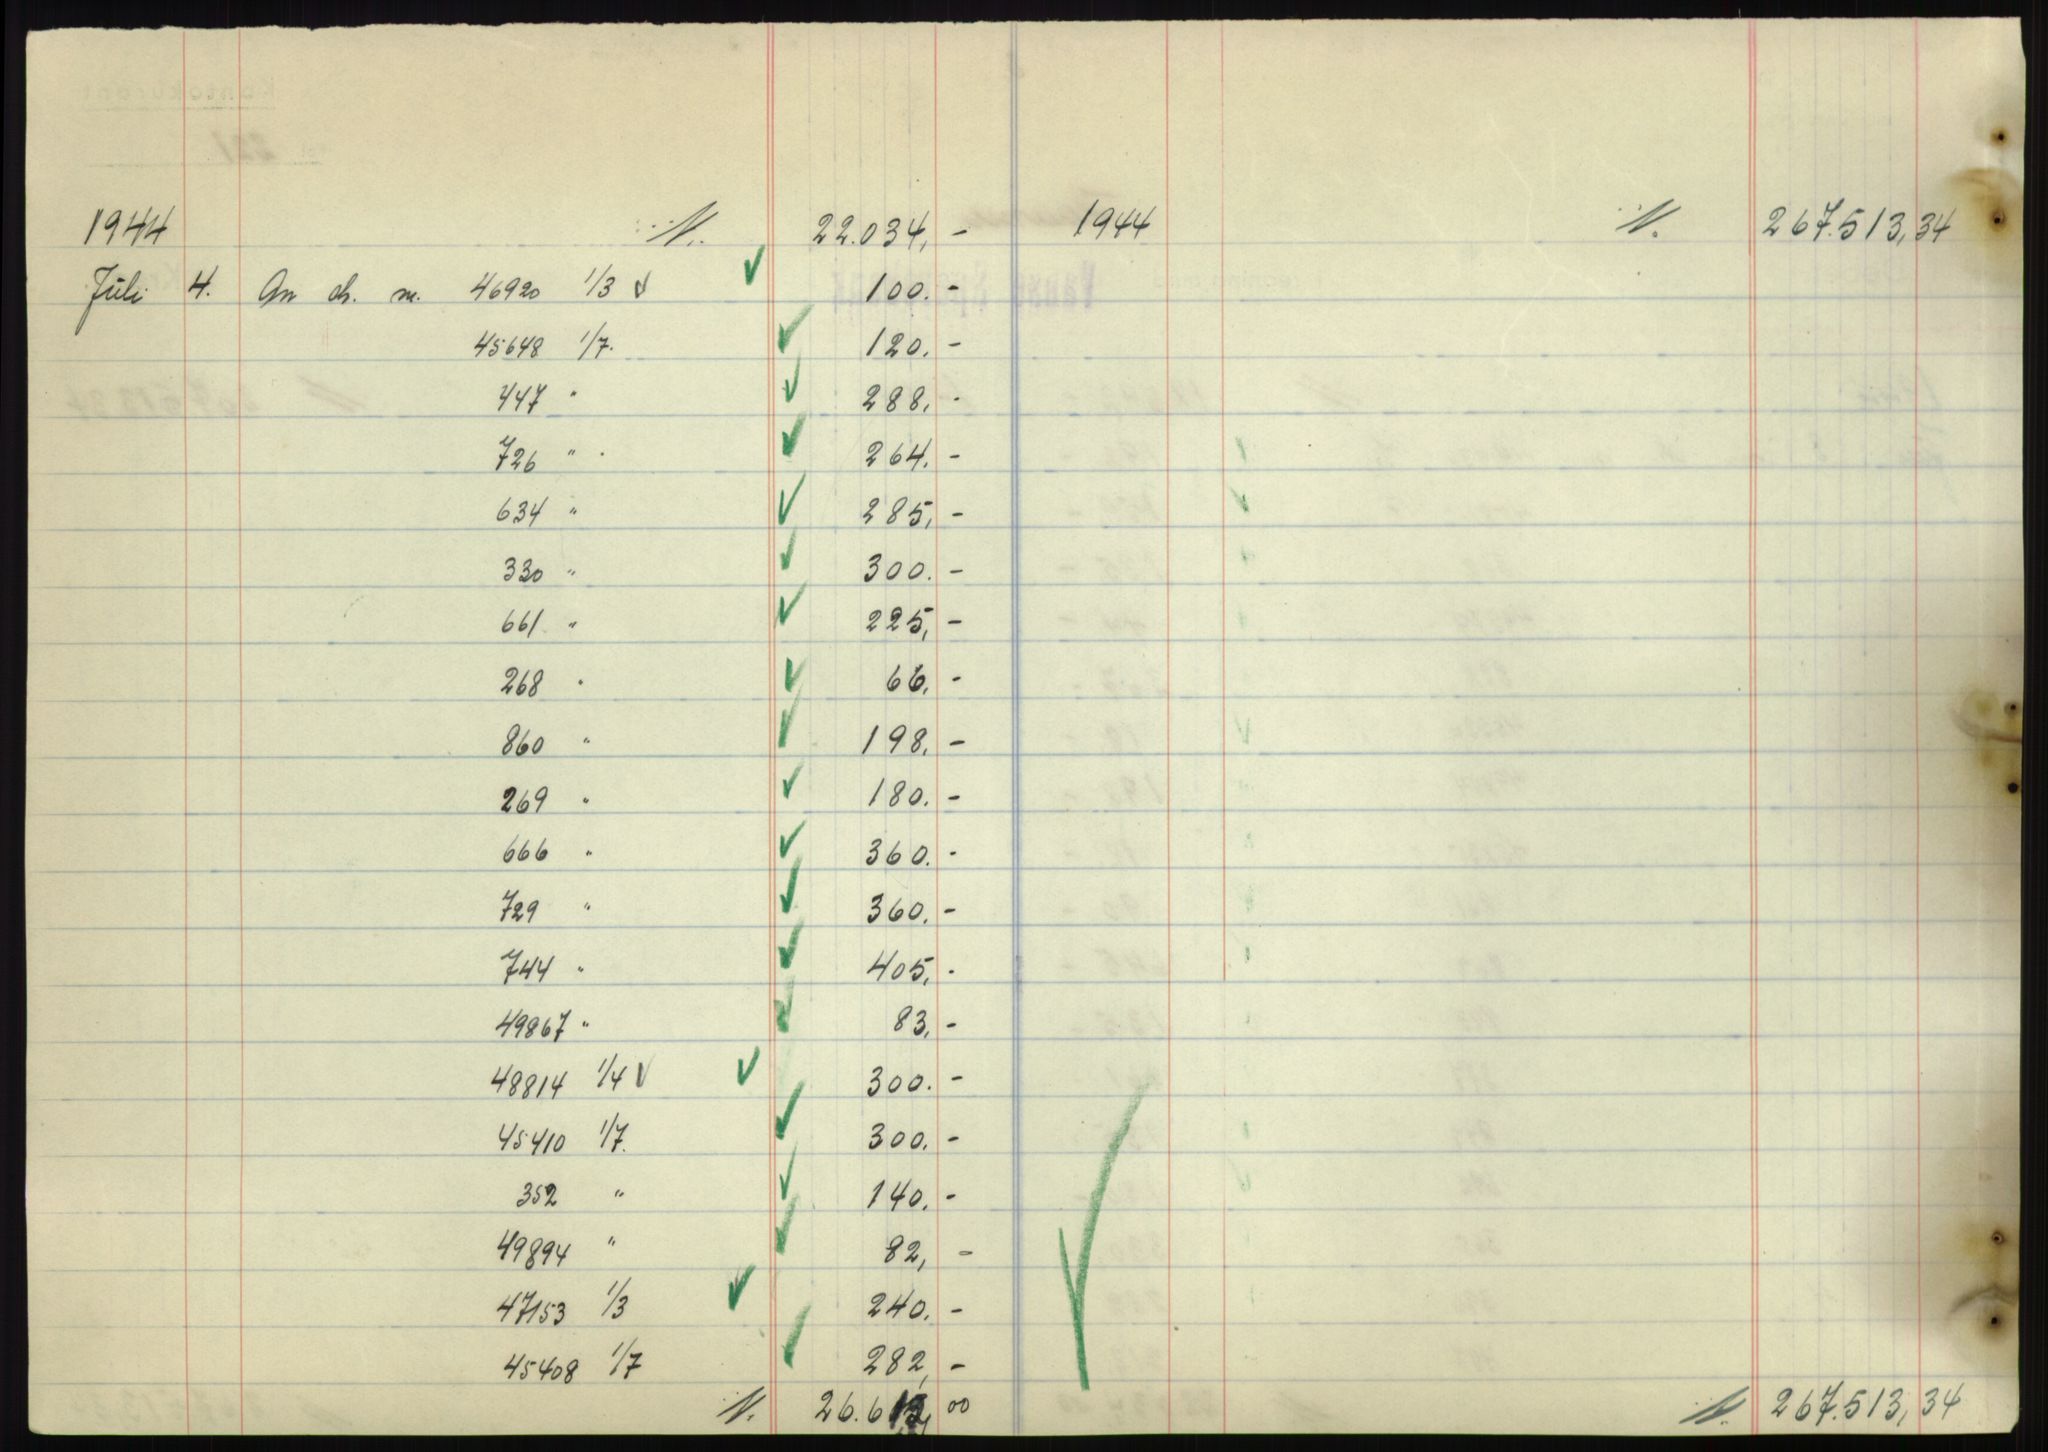 1944 ·/. 22.034,- 1944 ·/. 267.513,34
Juli 4. An ch. nr. 46920 1/3 100.-
45648 1/7. 120.-
447 " 288,-
726 " 264.-
634 " 285,-
330 " 300.-
661 " 225,-
268 " 66,-
860 " 198,-
269 " 180.-
666 " 360.-
729 " 360.-
744 " 405,-
49867 " 83,-
48814 1/4 300.-
45410 1/7. 300.-
352 " 140.-
49894 " 82,-
47153 1/3 240.-
45408 1/7 282,-
·/. 26.612,00 ·/. 267.513,34